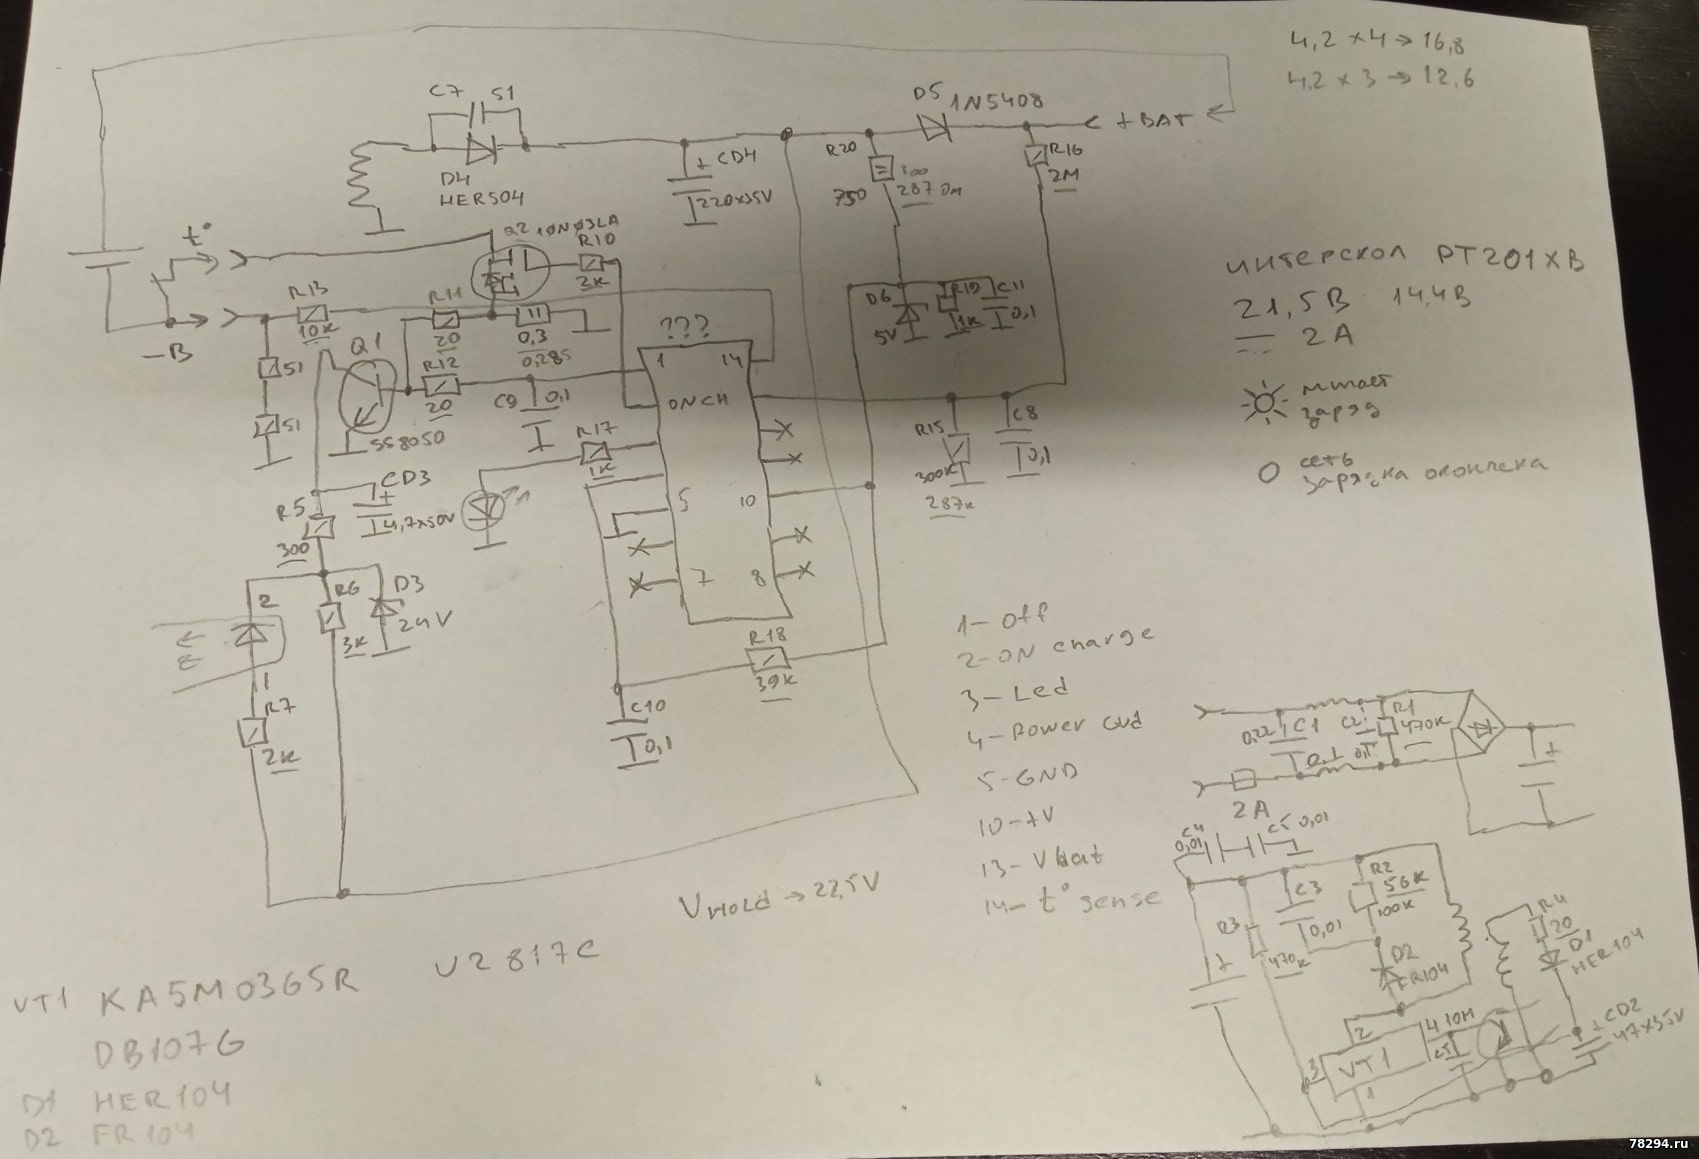 4,2 x4 → 16,8
4,2 x 3 → 12,6
C7 51
D4
HER504
CD4
220x35V
D5 1N5408
+BAT
R20
300
750
287 Ом
R16
2M
t°
Q2 10N03LA
R10
2K
R13
10K
R11
20
0,3
0,285
R12
20
Q1
SS8050
-B
51
51
C9 0,1
???
1
14
ONCH
D6
5V
R19
1K
C11
0,1
интерскол РТ201ХВ
21,5В 14,4В
2 А
мигает
заряд
сеть
зарядка окончена
R17
1K
CD3
4,7x50V
R5
300
5
10
7
8
R15
300K
287к
C8
0,1
2
R6
3K
D3
24V
1
R7
2K
R18
39K
C10
0,1
1- Off
2-ON charge
3- Led
4- Power
5-GND
10-+V
13- Vbat
14- t° sense
VHOLD → 22,5V
U2 817C
VT1 KA5M0365R
DB107G
D1 HER104
D2 FR104
0,22
C1
0,1
C2
R1
470K
2A
C4
0,01
C5 0,01
R3
470K
C3
0,01
R2
56K
100K
D2
FR104
R4
20
D1
HER104
CD2
47x35V
2
4
10M
3
VT1
1
78294.ru